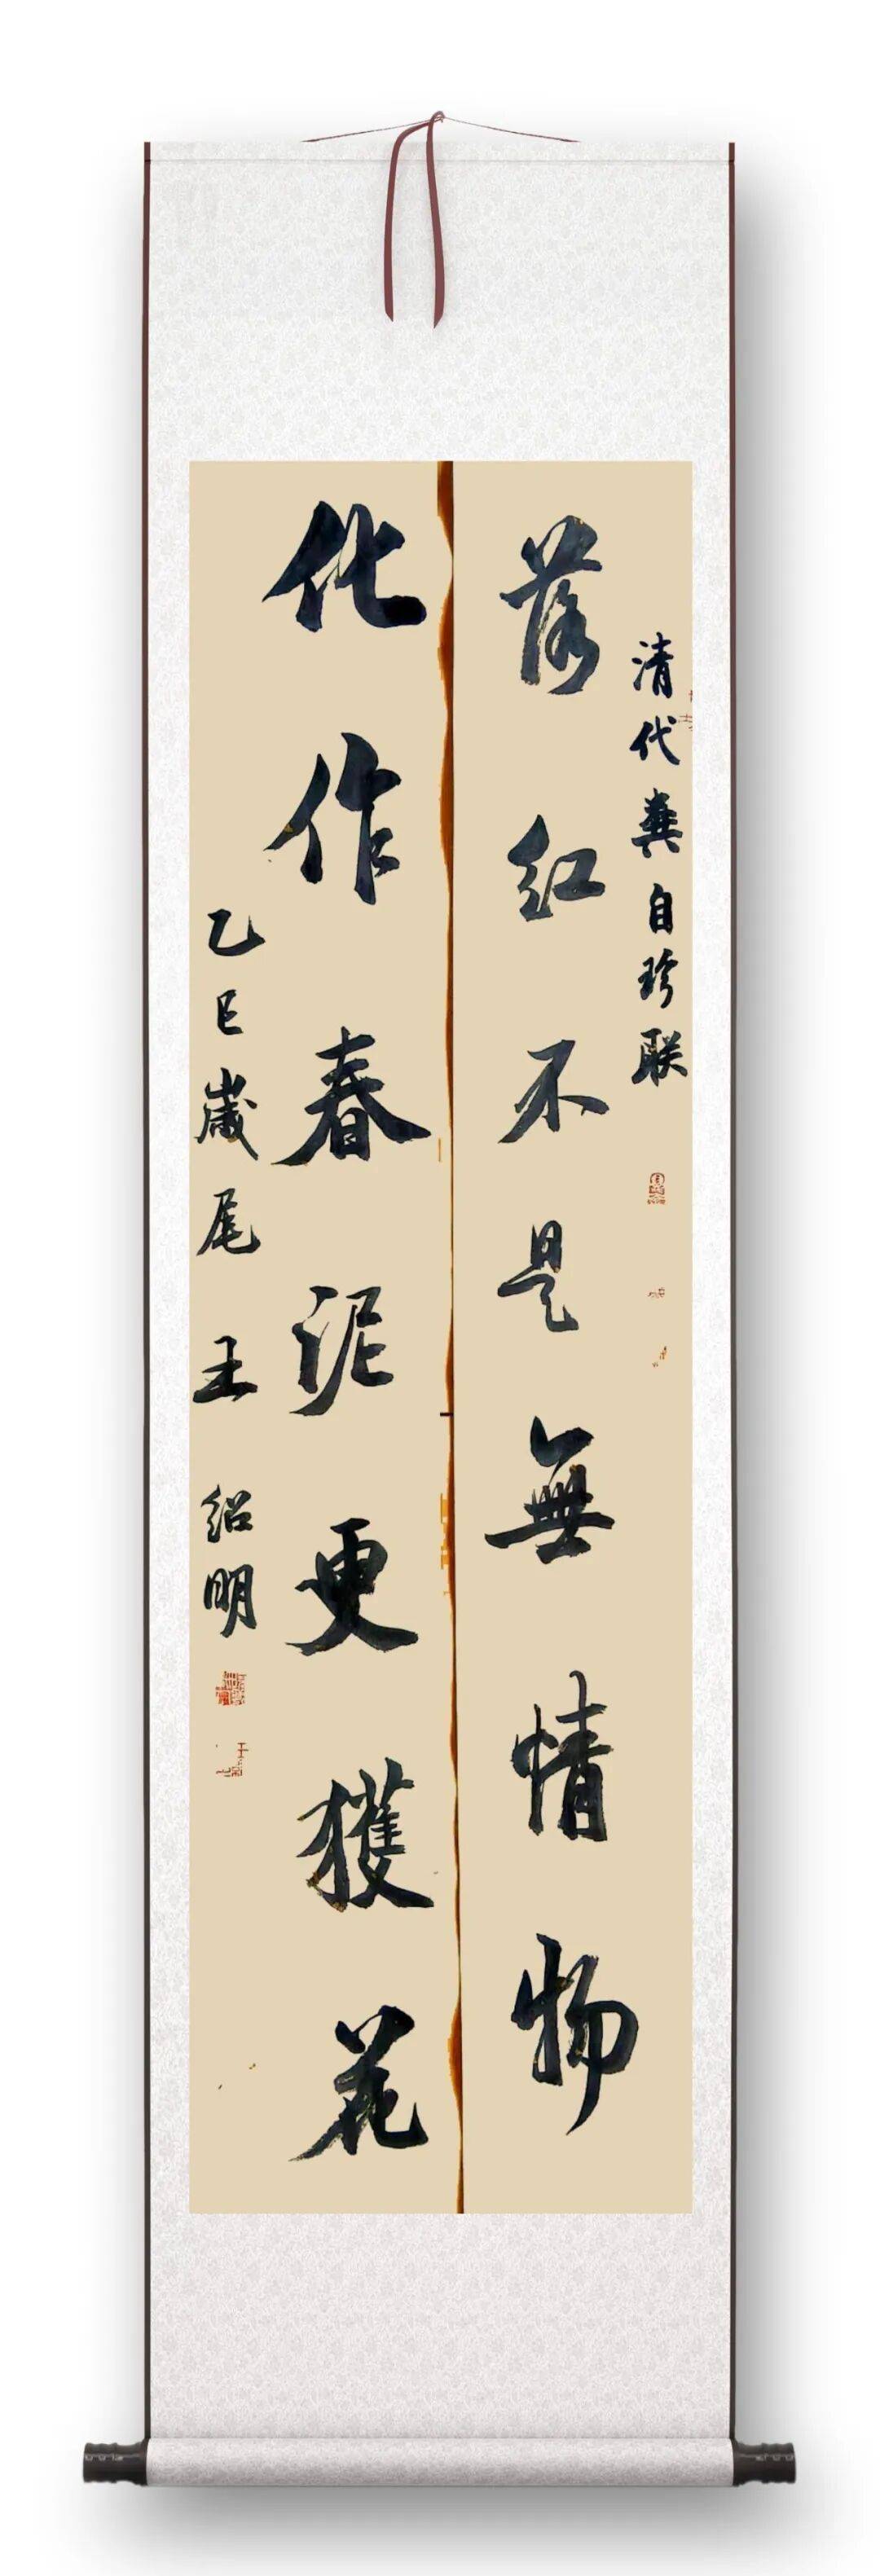 清代龚自珍联
落红不是無情物
化作春泥更獲花
乙巳歲尾 王绍明